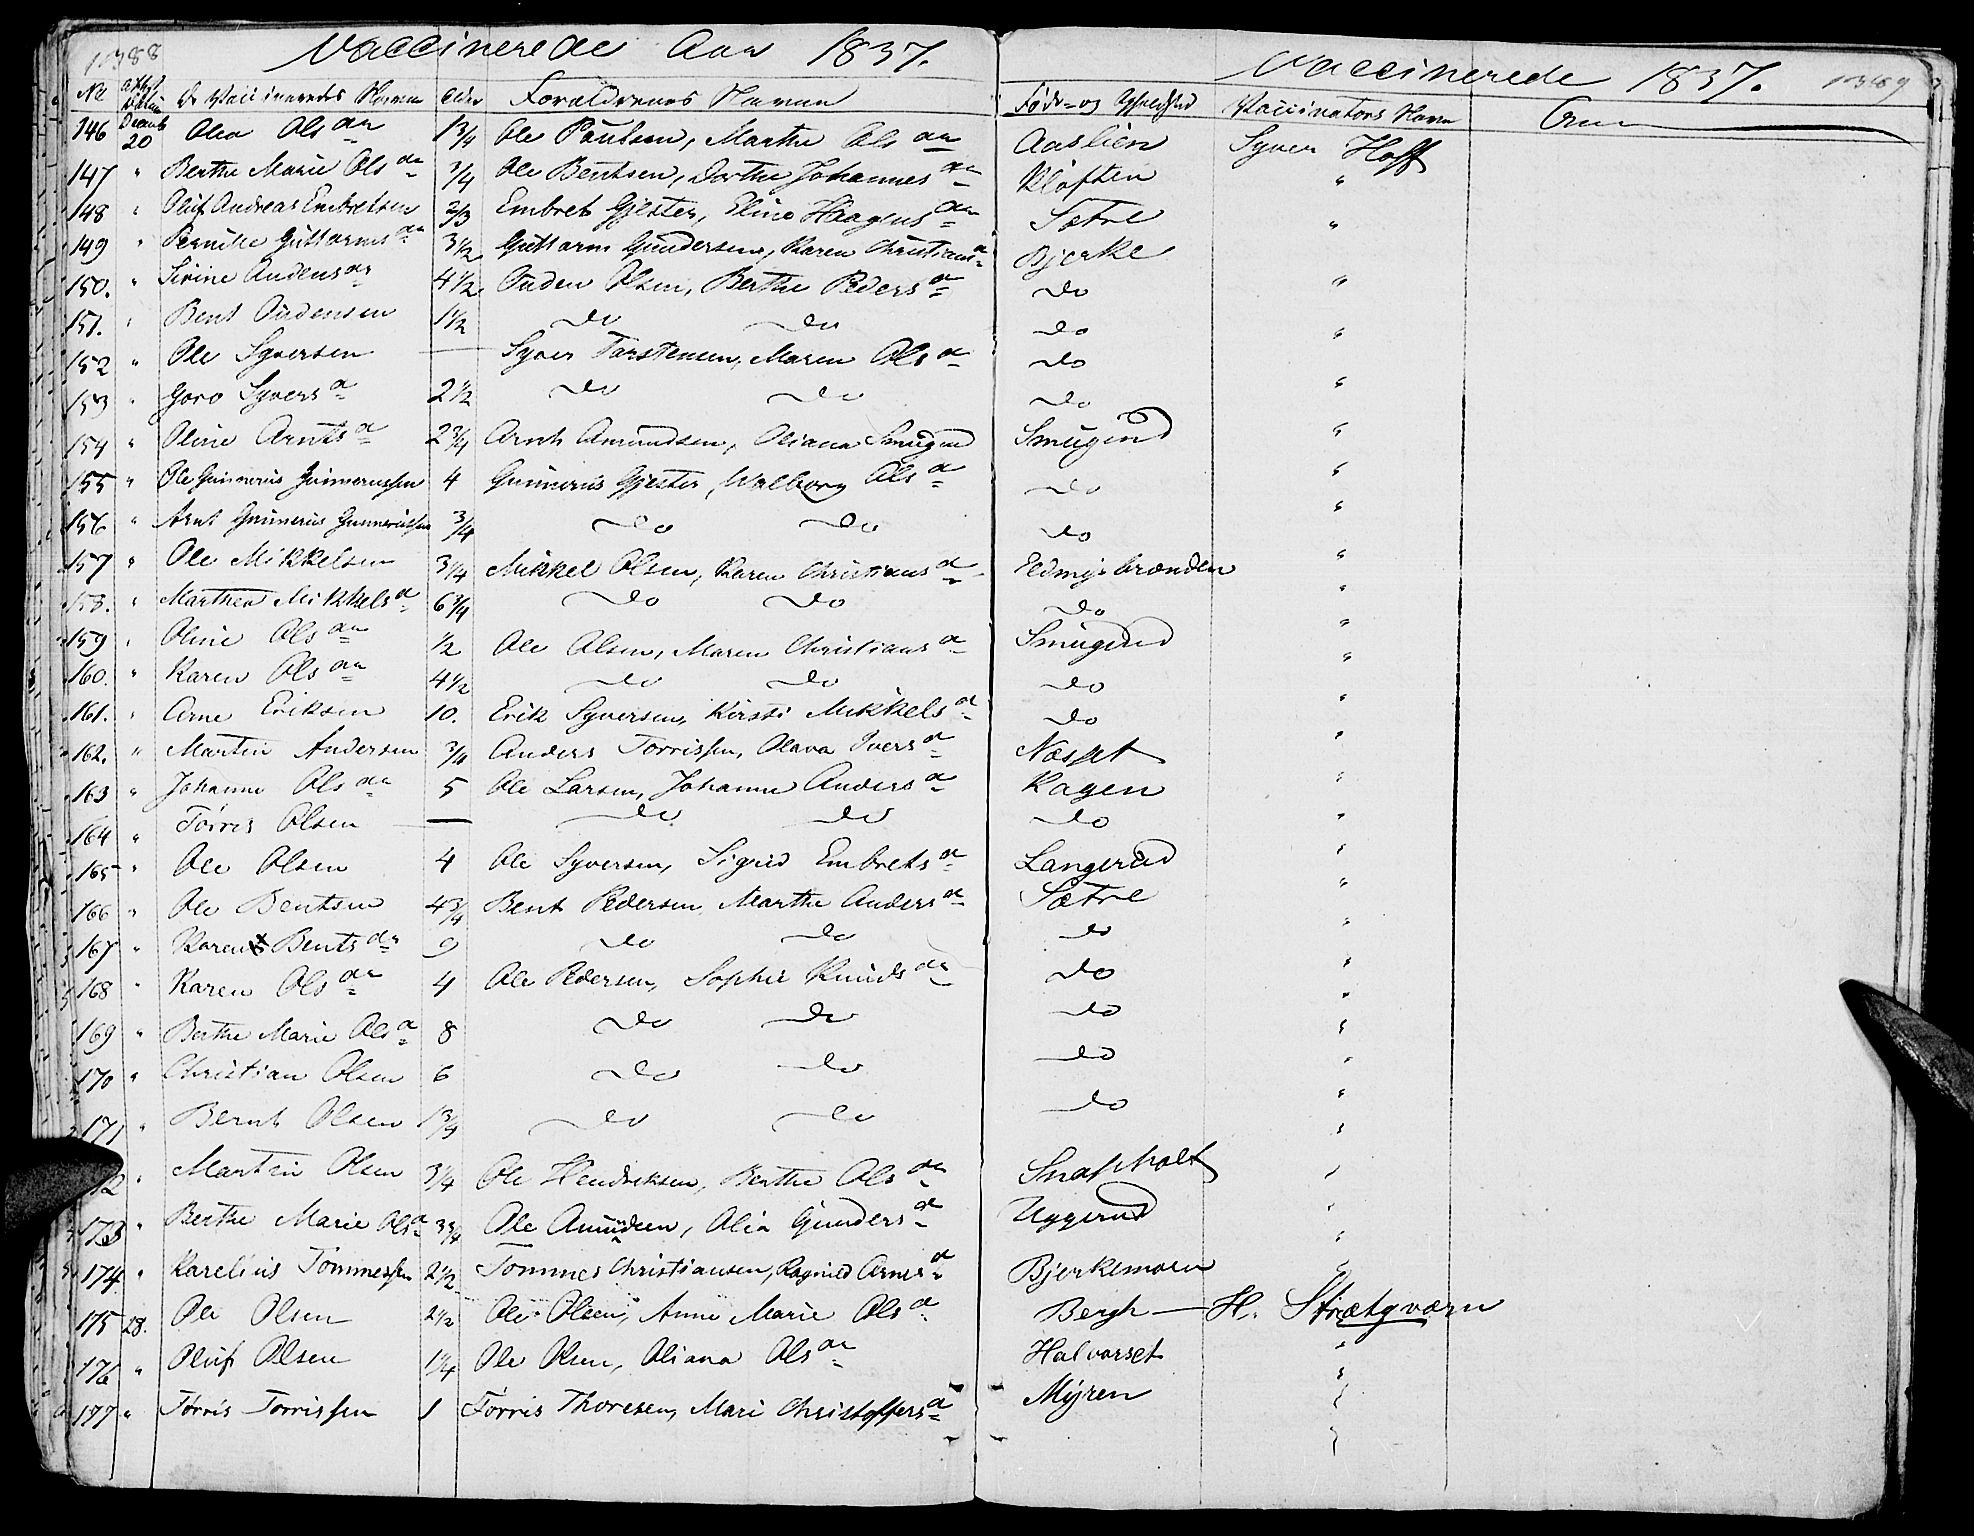 1388
Vaccinerede Aar 1837.
Vaccinerede 1837. 1389
No De Vaccineredes Navne Alder Forældrenes Navne Føde- og Opholdsted Vaccinators Navn Anm
146 Decemb 20 Olia Olsdr 1 3/4 Ole Paulsen, Marthe Olsdr Aaslien Syver Hoff
147 " Berthe Marie Olsdr 3/4 Ole Bentsen, Dorthe Johannesdr Kløften "
148 " Oluf Andreas Embretsen 2/3 Embret Gjester, Eline Haagensdr Sætre "
149 " Pernille Guttormsdr 3 1/2 Guttorm Gundersen, Karen Christiansd Bjerke
150. " Sirine Audensdr 4 1/2 Auden Olsen, Berthe Pedersd do "
151. " Bent Audensen 1 1/2 do do do "
152 " Ole Syversen — Syver Tarstensen, Maren Olsd do
153 " Goro Syversd 2 1/2 do do do "
154 " Oline Arntsd 2 3/4 Arnt Amundsen, Oliana Smugrud Smugrud "
155 " Ole Gunnerius Gunneriussen 4 Gunnerius Gjester, Walborg Olsd do "
156 " Arnt Gunnerius Gunneriussen 3/4 do do do "
157 " Ole Mikkelsen 3/4 Mikkel Olsen, Karen Christiansd brænden "
158. " Marthea Mikkelsd 6 3/4 do do do "
159 " Oline Olsdr 1/2 Ole Olsen, Maren Christiansd Smugrud "
160. " Karen Olsdr 4 1/2 do do do "
161. " Arne Eriksen 10. Erik Syversen, Kirsti Mikkelsd do "
162. " Martin Andersen 3/4 Anders Torrissen, Olava Iversd Næsset "
163 " Johanne Olsdr 5 Ole Larsen, Johanne Andersd Kagen "
164 " Torris Olsen — do do do "
165 " Ole Olsen 4 Ole Syversen, Sigrid Embretsd Langerud "
166 " Ole Bentsen 4 3/4 Bent Pedersen, Marthe Andersd Sætre "
167 " Karen Bentsdr 9 do do do "
168 " Karen Olsdr 4 Ole Pedersen, Sophie Knudsdr do "
169 " Berthe Marie Olsd 8 do do do "
170 " Christian Olsen 6 do do do "
171 " Bernt Olsen 1 3/4 do do do "
172 " Martin Olsen 3/4 Ole Hendriksen, Berthe Olsdr "
173 " Berthe Marie Olsd 3 3/4 Ole Amundsen, Olia Gundersd Uggerud "
174 " Karelius Tommessen 2 1/2 Tommes Christiansen, Ragnild Arnesd Bjerkemoen "
175 28. Ole Olsen 2 1/2 Ole Olsen, Anne Marie Olsd Bergh — H. Strætqværn
176 " Oluf Olsen 1 1/4 Ole Olsen, Oliana Olsdr Halvorset "
177 " Torris Torrissen 1 Torris Thoresen, Mari Christoffersd Myren "